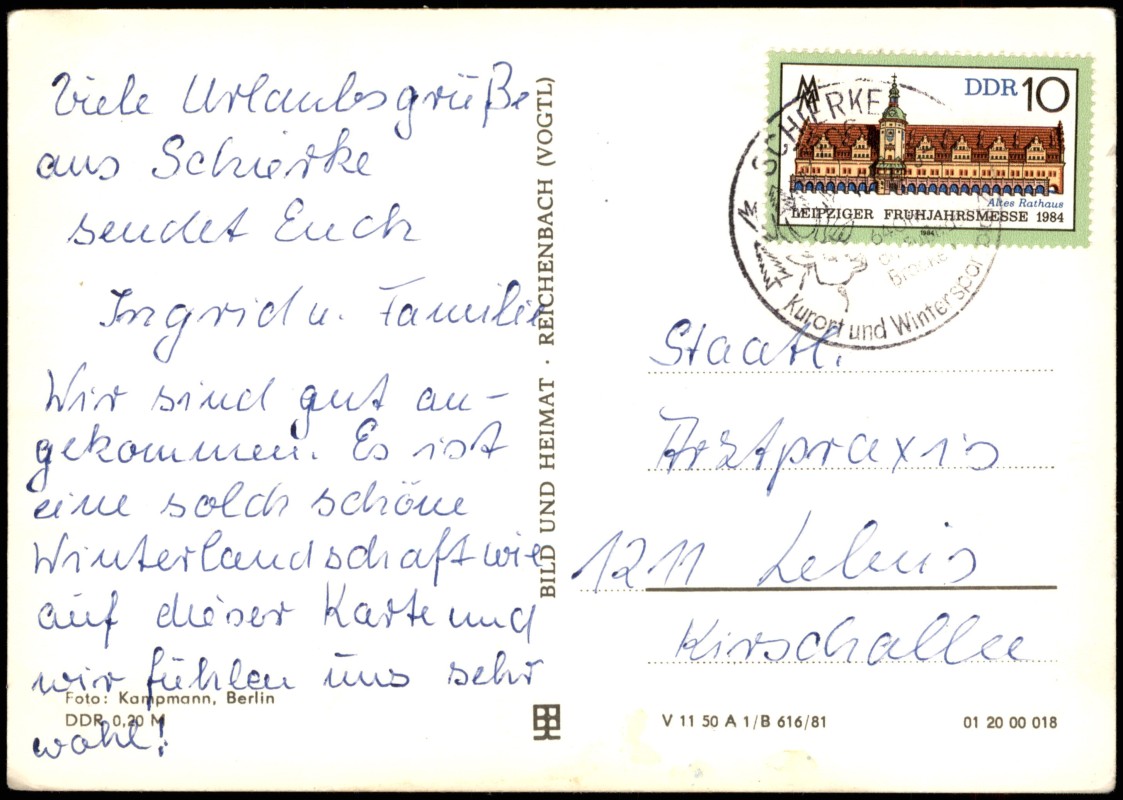 Viele Urlaubsgrüße
aus Schierke
sendet Euch
Ingrid u. Familie
Wir sind gut an-
gekommen. Es ist
eine solch schöne
Winterlandschaft wie
auf dieser Karte und
wir fühlen uns sehr
wohl!
Foto: Kampmann, Berlin
DDR 0,20 M
BILD UND HEIMAT · REICHENBACH (VOGTL)
DDR 10
Altes Rathaus
LEIPZIGER FRÜHJAHRSMESSE 1984
1984
SCHIERKE
Kurort und Wintersport
Staatl.
Arztpraxis
1211 Lebus
Kirschallee
V 11 50 A 1/B 616/81
01 20 00 018